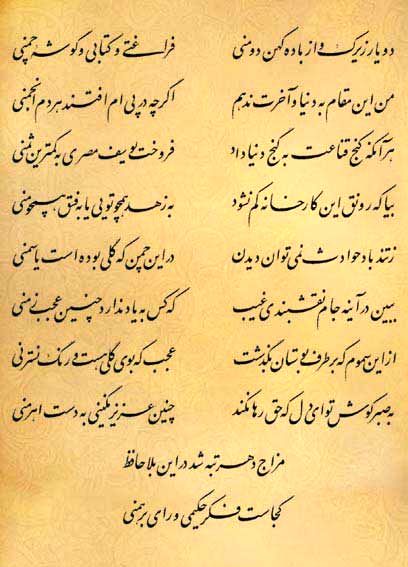 دو یار زیرک و از باده کهن دو منی فراغتی و کتابی و گوشه چمنی
من این مقام به دنیا و آخرت ندهم اگرچه در پی ام افتند هر دم انجمنی
هر آنکه کنج قناعت به گنج دنیا داد فروخت یوسف مصری به کمترین ثمنی
بیا که رونق این کارخانه کم نشود به زهد همچو تویی یا به فسق همچو منی
ز تندباد حوادث نمی توان دیدن در این چمن که گلی بوده است یا سمنی
ببین در آینه جام نقشبندی غیب که کس به یاد ندارد چنین عجب زمنی
از این سموم که بر طرف بوستان بگذشت عجب که بوی گلی هست و رنگ نسترنی
به صبر کوش تو ای دل که حق رها نکند چنین عزیز نگینی به دست اهرمنی
مزاج دهر تبه شد در این بلا حافظ
کجاست فکر حکیمی و رای برهمنی